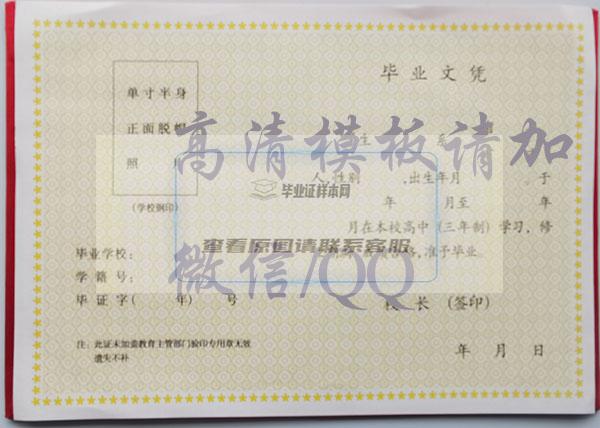 毕业文凭
单寸半身
正面脱帽
照 片
(学校钢印)
高清模板请加
生 系
人,性别 ,出生年月 。于
年 月至 年
月在本校高中(三年制)学习,修
,准予毕业。
毕业证样本网
查看原图请联系客服
微信/QQ
毕业学校:
学籍号:
毕证字( 年) 号
校 长 (签印)
注:此证未加盖教育主管部门验印专用章无效
遗失不补
年 月 日